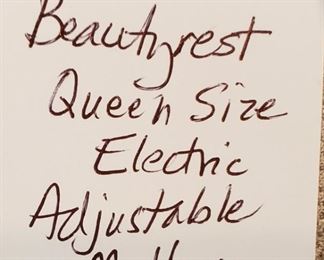 Beautyrest
Queen Size
Electric
Adjustable